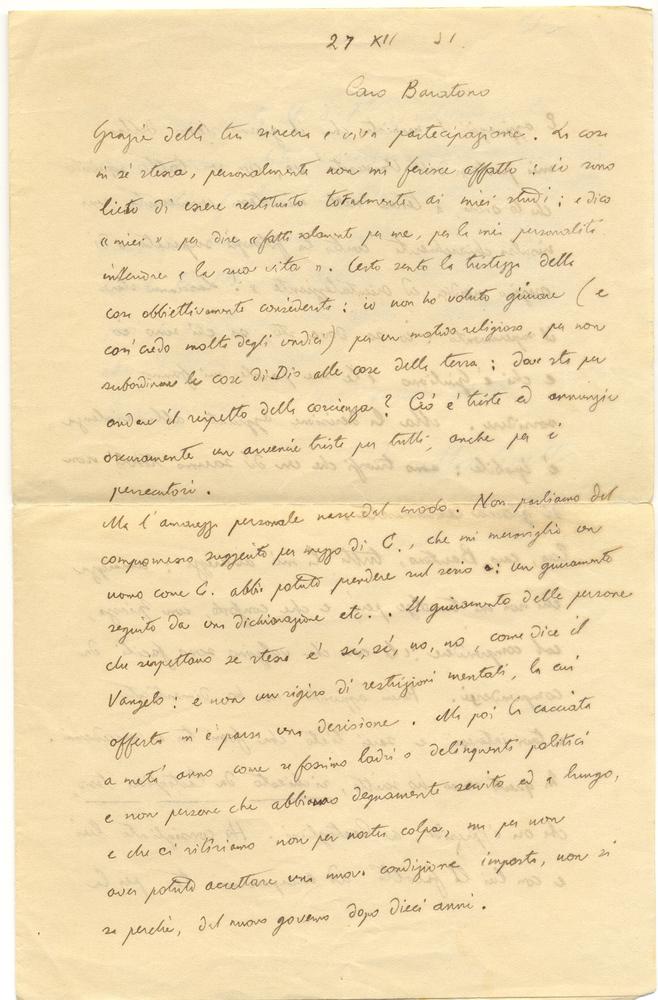 27 XII 31.
Caro Baratono
Grazie della tua sincera e viva partecipazione. La cosa
in sé stessa, personalmente non mi ferisce affatto: io sono
lieto di essere restituito totalmente ai miei studi; e dico
« miei » per dire « fatti solamente per me, per la mia personalità
interiore e la sua vita ». Certo sento la tristezza della
cosa obbiettivamente considerata: io non ho voluto giurare (e
così credo molti degli undici) per un motivo religioso, per non
subordinare le cose di Dio alle cose della terra; dove sta per
andare il rispetto della coscienza? Ciò è triste ed annunzia
oscuramente un avvenire triste per tutti, anche per i
persecutori.
Ma l'amarezza personale nasce dal modo. Non parliamo del
compromesso suggerito per mezzo di C., che mi meraviglio un
uomo come C. abbia potuto prendere sul serio: un giuramento
seguito da una dichiarazione etc.. Il giuramento delle persone
che rispettano se stesse è sí, sí, no, no come dice il
Vangelo: e non un rigiro di restrizioni mentali, la cui
offerta m'è parsa una derisione. Ma poi la cacciata
a metà anno come se fossimo ladri o delinquenti politici
e non persone che abbiano degnamente servito ed a lungo,
e che ci ritiriamo non per nostra colpa, ma per non
aver potuto accettare una nuova condizione imposta, non si
sa perché, dal nuovo governo dopo dieci anni.